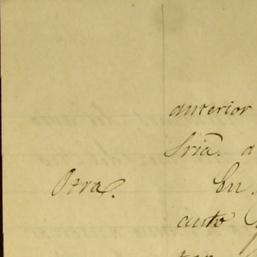 anterior
Sría. a
Otra. En.
auto